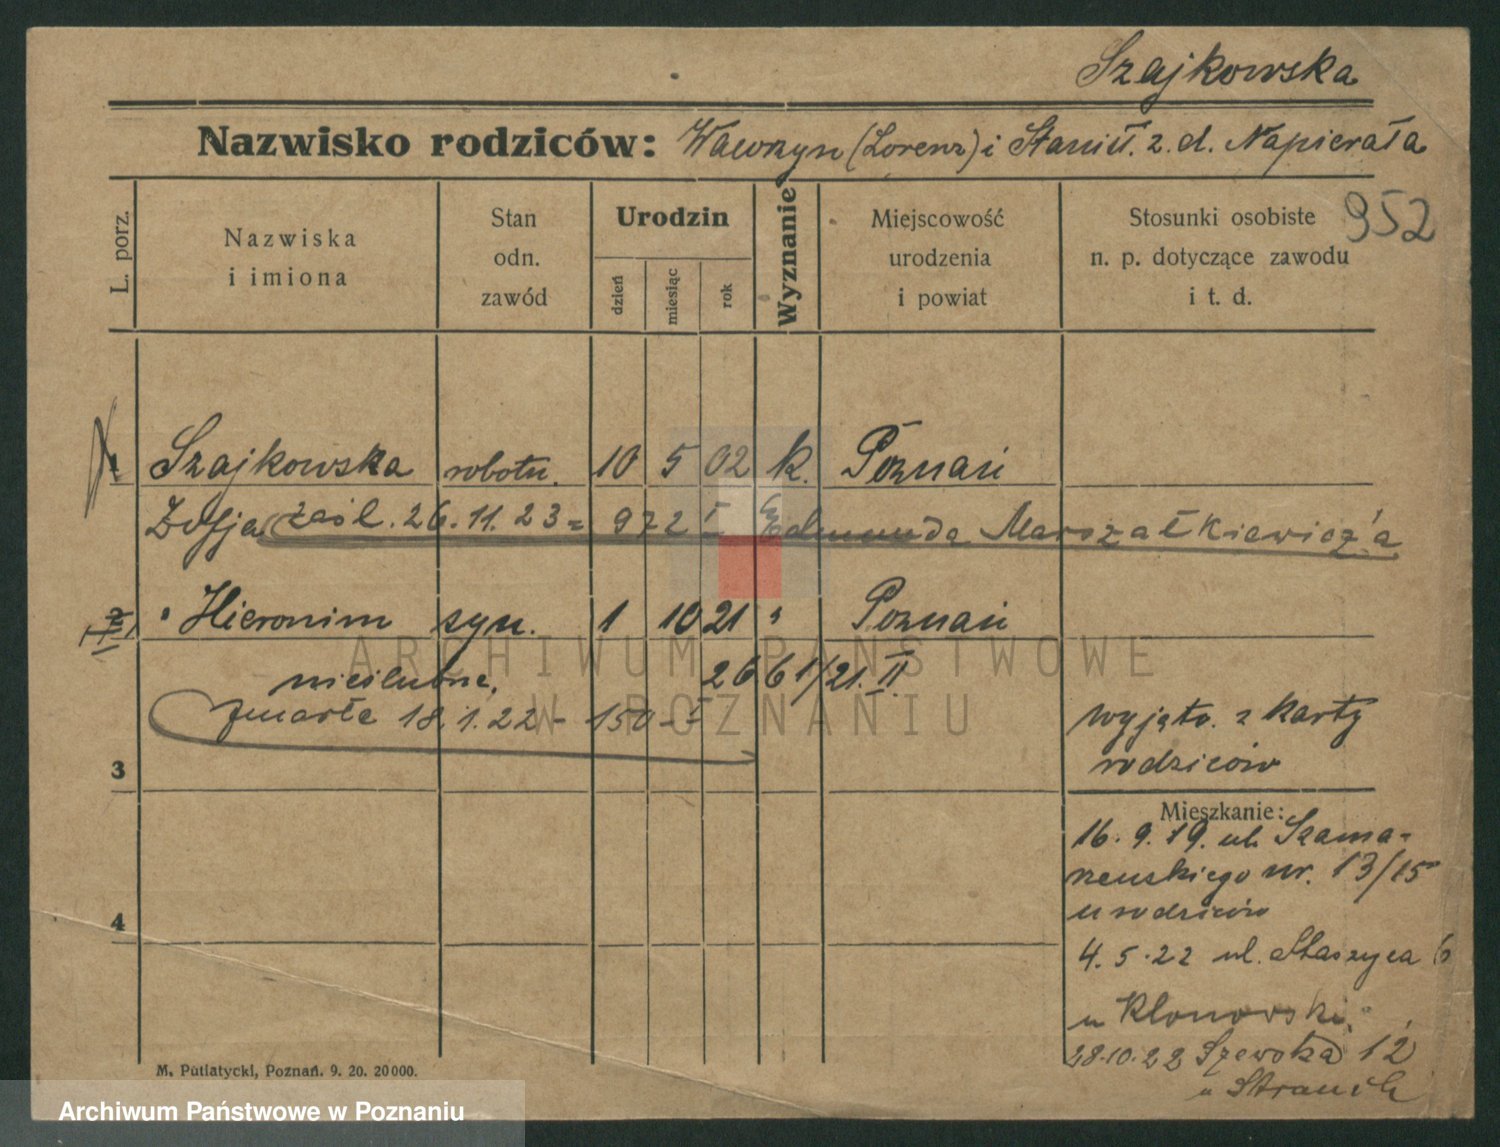 Szajkowska
Nazwisko rodziców: Wawrzyn (Lorenz) i Stanisł. z. d. Napierała
952
L. porz.
Nazwiska
i imiona
Stan
odn.
zawód
Urodzin
dzień
miesiąc
rok
Wyznanie
Miejscowość
urodzenia
i powiat
Stosunki osobiste
n. p. dotyczące zawodu
i t. d.
1 Szajkowska robotn. 10 5 02 k. Poznań
Zofja zaśl. 26.11.23 = 972 I Edmunda Marszałkiewicz'a
2 " Hieronim syn. 1 10 21 " Poznań
nieślubne, 2661/21. II
zmarłe 18.1.22 - 150 - I
wyjęto. z karty
rodziców
3
Mieszkanie:
16.9.19. ul. Szama-
rzewskiego nr. 13/15
u rodziców
4
4.5.22 ul. Staszyca 6
u Klonowski.
28.10.22 Szewska 12
u Strauch
M. Putiatycki, Poznań. 9. 20. 20000.
ARCHIWUM PAŃSTWOWE
W POZNANIU
Archiwum Państwowe w Poznaniu